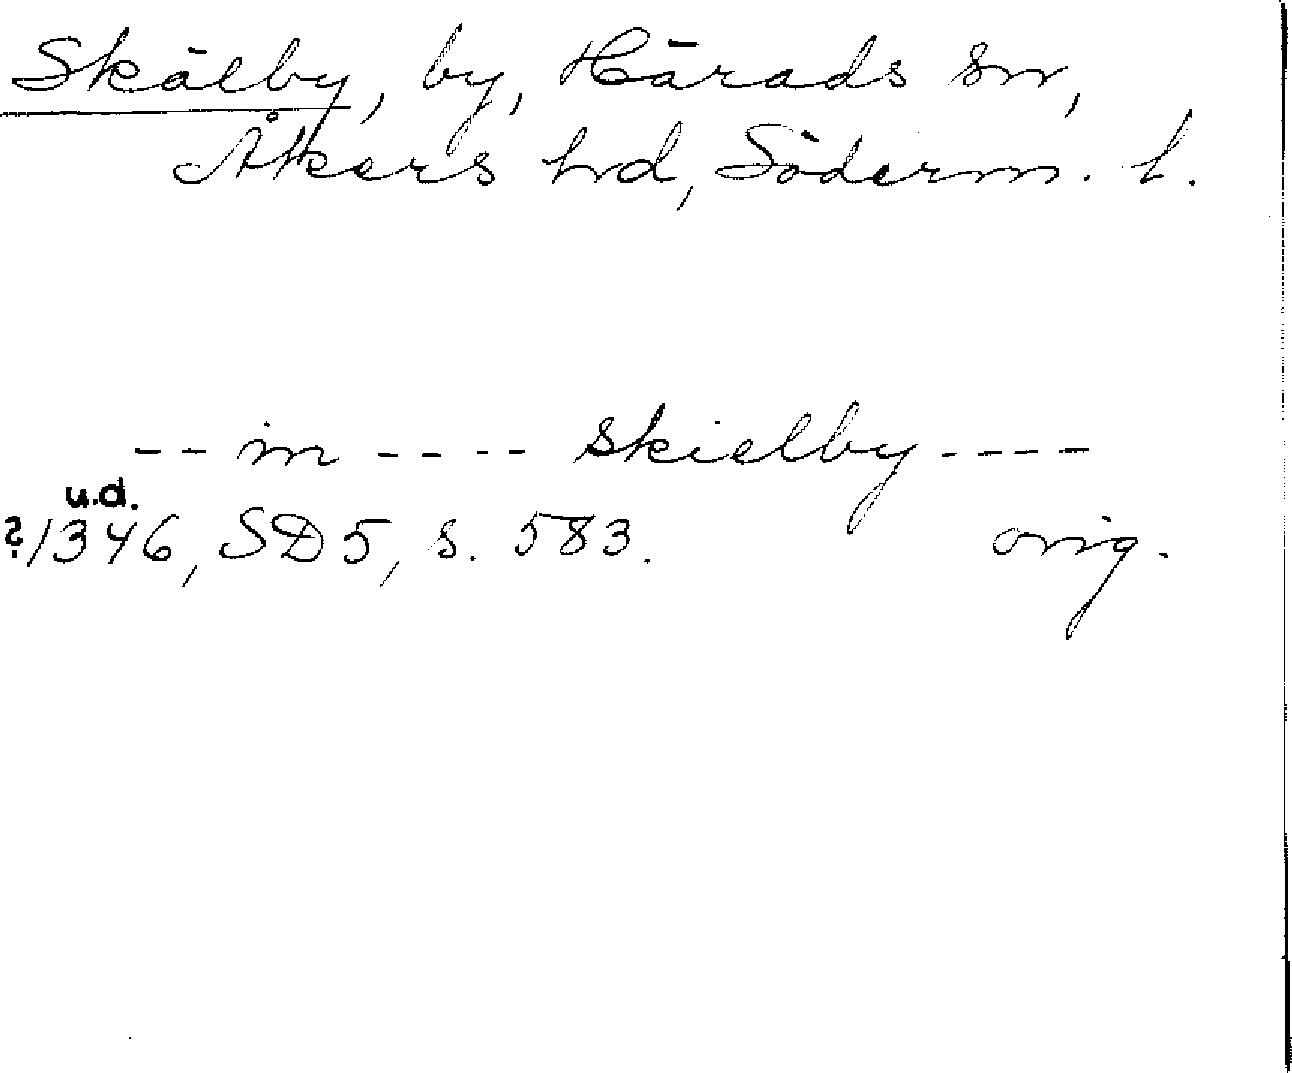 Skälby, by, Härads sn,
Åkers hd, Söderm. l.
-- in ---- skielby ----
u.d.
?1346, SD5, s. 583. orig.